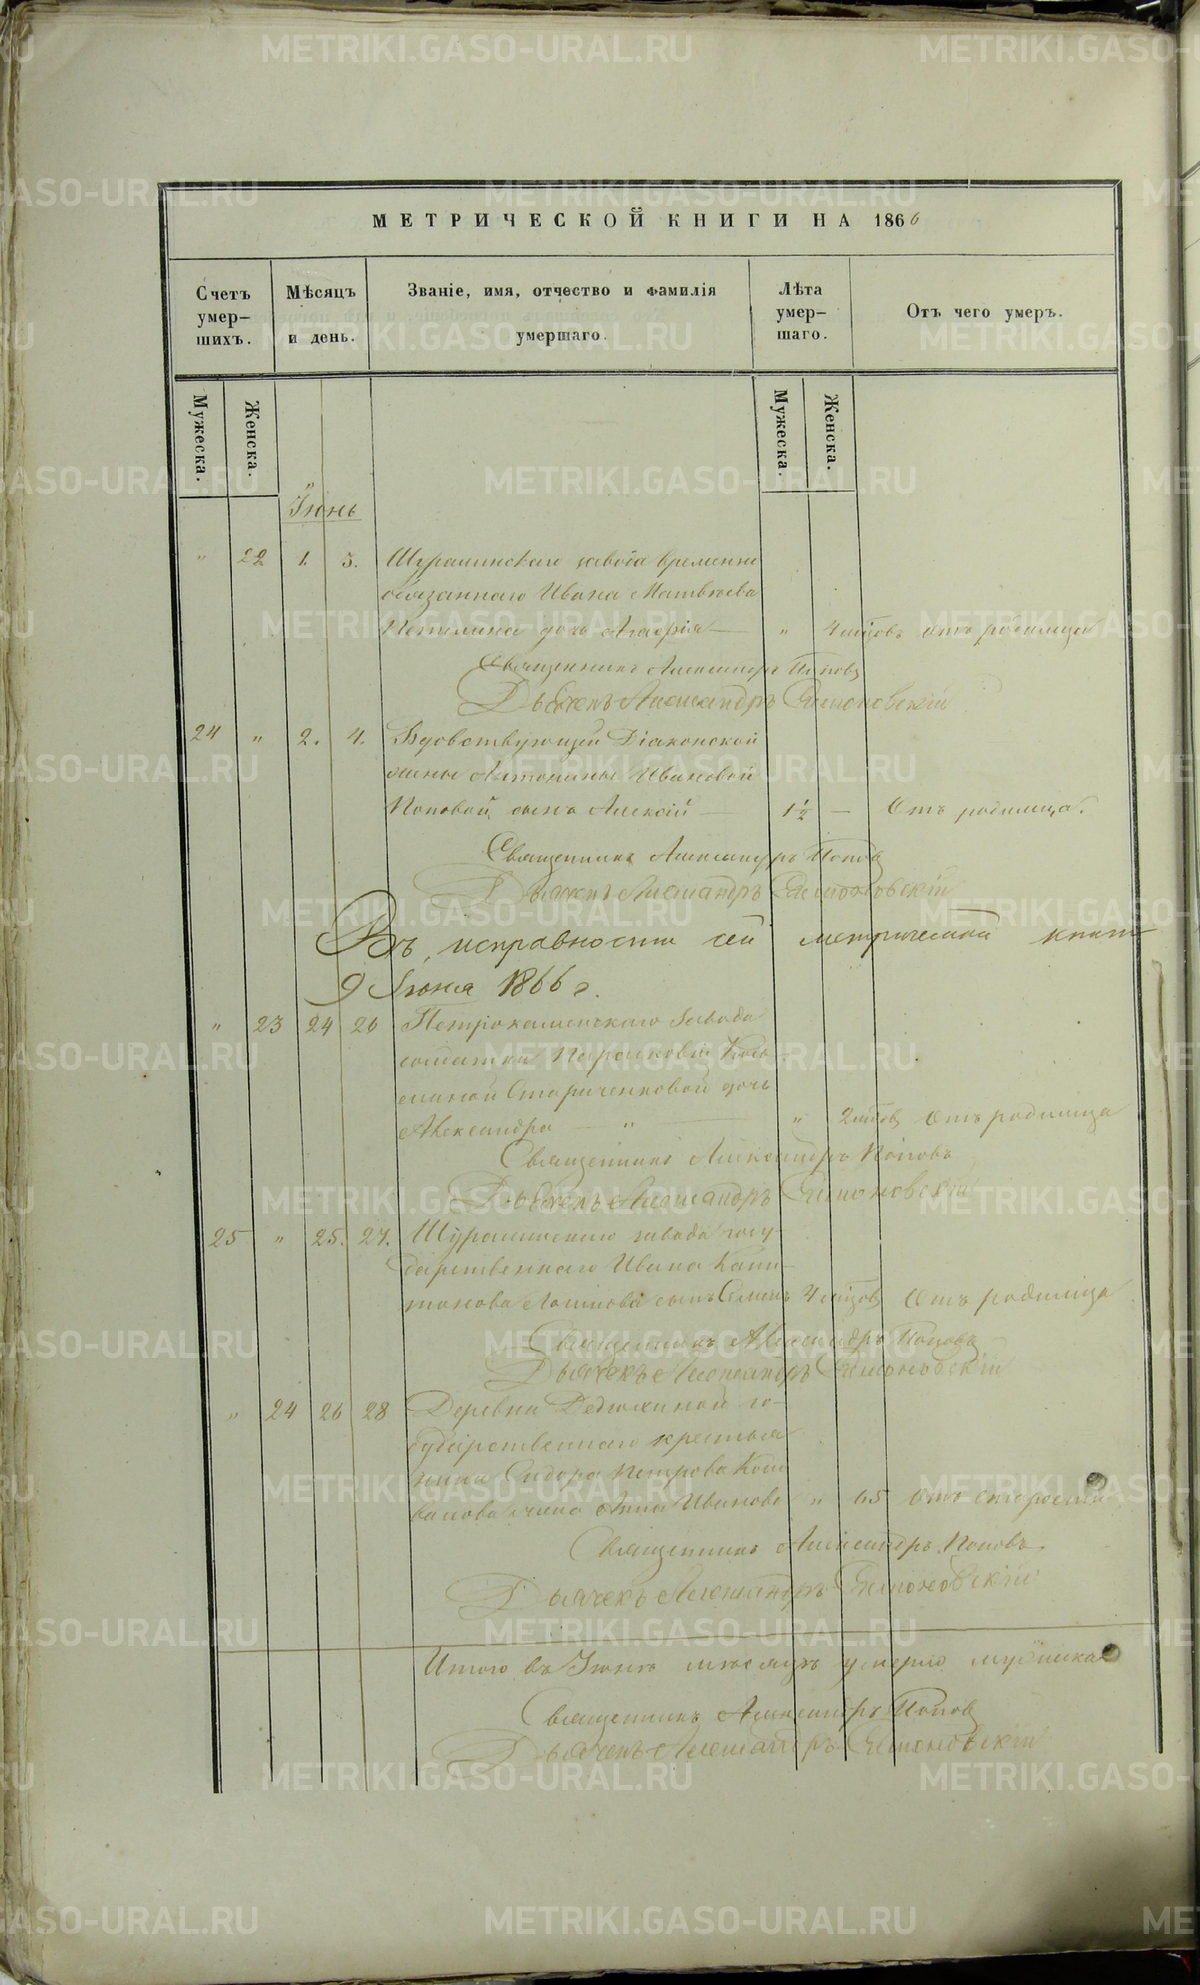 МЕТРИЧЕСКОЙ КНИГИ НА 1866
Счетъ умер-
шихъ.
Мѣсяцъ
и день.
Званіе, имя, отчество и фамилія
умершаго.
Лѣта
умер-
шаго.
Отъ чего умеръ.
Мужеска.
Женска.
Мужеска.
Женска.
Іюнь
" 22 1. 3. завода временно
обязаннаго Ивана Матвѣева
дочь " 4 мѣсцовъ отъ родимца
Священникъ Александръ Поповъ
Дьячекъ Александръ
24 " 2. 4. Вдовствующей Діаконской
жены Антонины Ивановой
Поповой сынъ Алексій — 1½ — Отъ родимца.
Священникъ Александръ Поповъ
Дьячекъ Александръ
Въ исправности сей метрической книги
9 Іюня 1866 г.
" 23 24 26 Петрокаменскаго завода
солдатки Парасковіи
Стариченковой дочь
Александра — " — " 2 мѣсцовъ Отъ родимца
Священникъ Александръ Поповъ
Дьячекъ Александръ
25 " 25. 27. завода госу-
дарственнаго Ивана Капи-
тонова сынъ Семенъ 4 мѣсцовъ Отъ родимца
Священникъ Александръ Поповъ
Дьячекъ Александръ
" 24 26 28 Деревни Федюхиной го-
сударственнаго крестья
нина Сидора Петрова
жена Анна Иванова " 65 Отъ старости
Священникъ Александръ Поповъ
Дьячекъ Александръ
Итого въ Іюнѣ мѣсяцѣ умерло мужеска
Священникъ Александръ Поповъ
Дьячекъ Александръ
METRIKI.GASO-URAL.RU